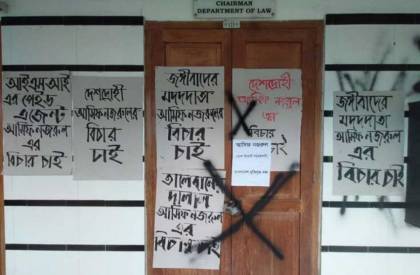 CHAIRMAN
DEPARTMENT OF LAW
আইএসআই
এর পেইড
এজেন্ট
আসিফ নজরুল
এর
বিচার চাই
দেশদ্রোহী
আসিফ নজরুলের
বিচার
চাই
জঙ্গীবাদের
মদদদাতা
আসিফ নজরুলের
বিচার
চাই
তালেবানের
দালাল
আসিফ নজরুল
এর
বিচার চাই
দেশদ্রোহী
আসিফ নজরুল
এর
বিচার
চাই
আসিফ নজরুল
জঙ্গীবাদের
মদদদাতা
আসিফ নজরুল
এর
বিচার চাই